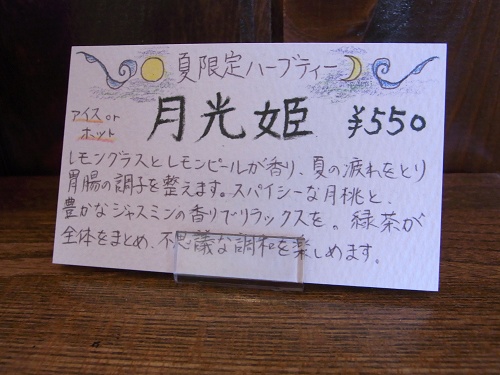 夏限定ハーブティー
アイス or
ホット
月光姫 ¥550
レモングラスとレモンピールが香り、夏の疲れをとり
胃腸の調子を整えます。スパイシーな月桃と、
豊かなジャスミンの香りでリラックスを。緑茶が
全体をまとめ、不思議な調和を楽しめます。